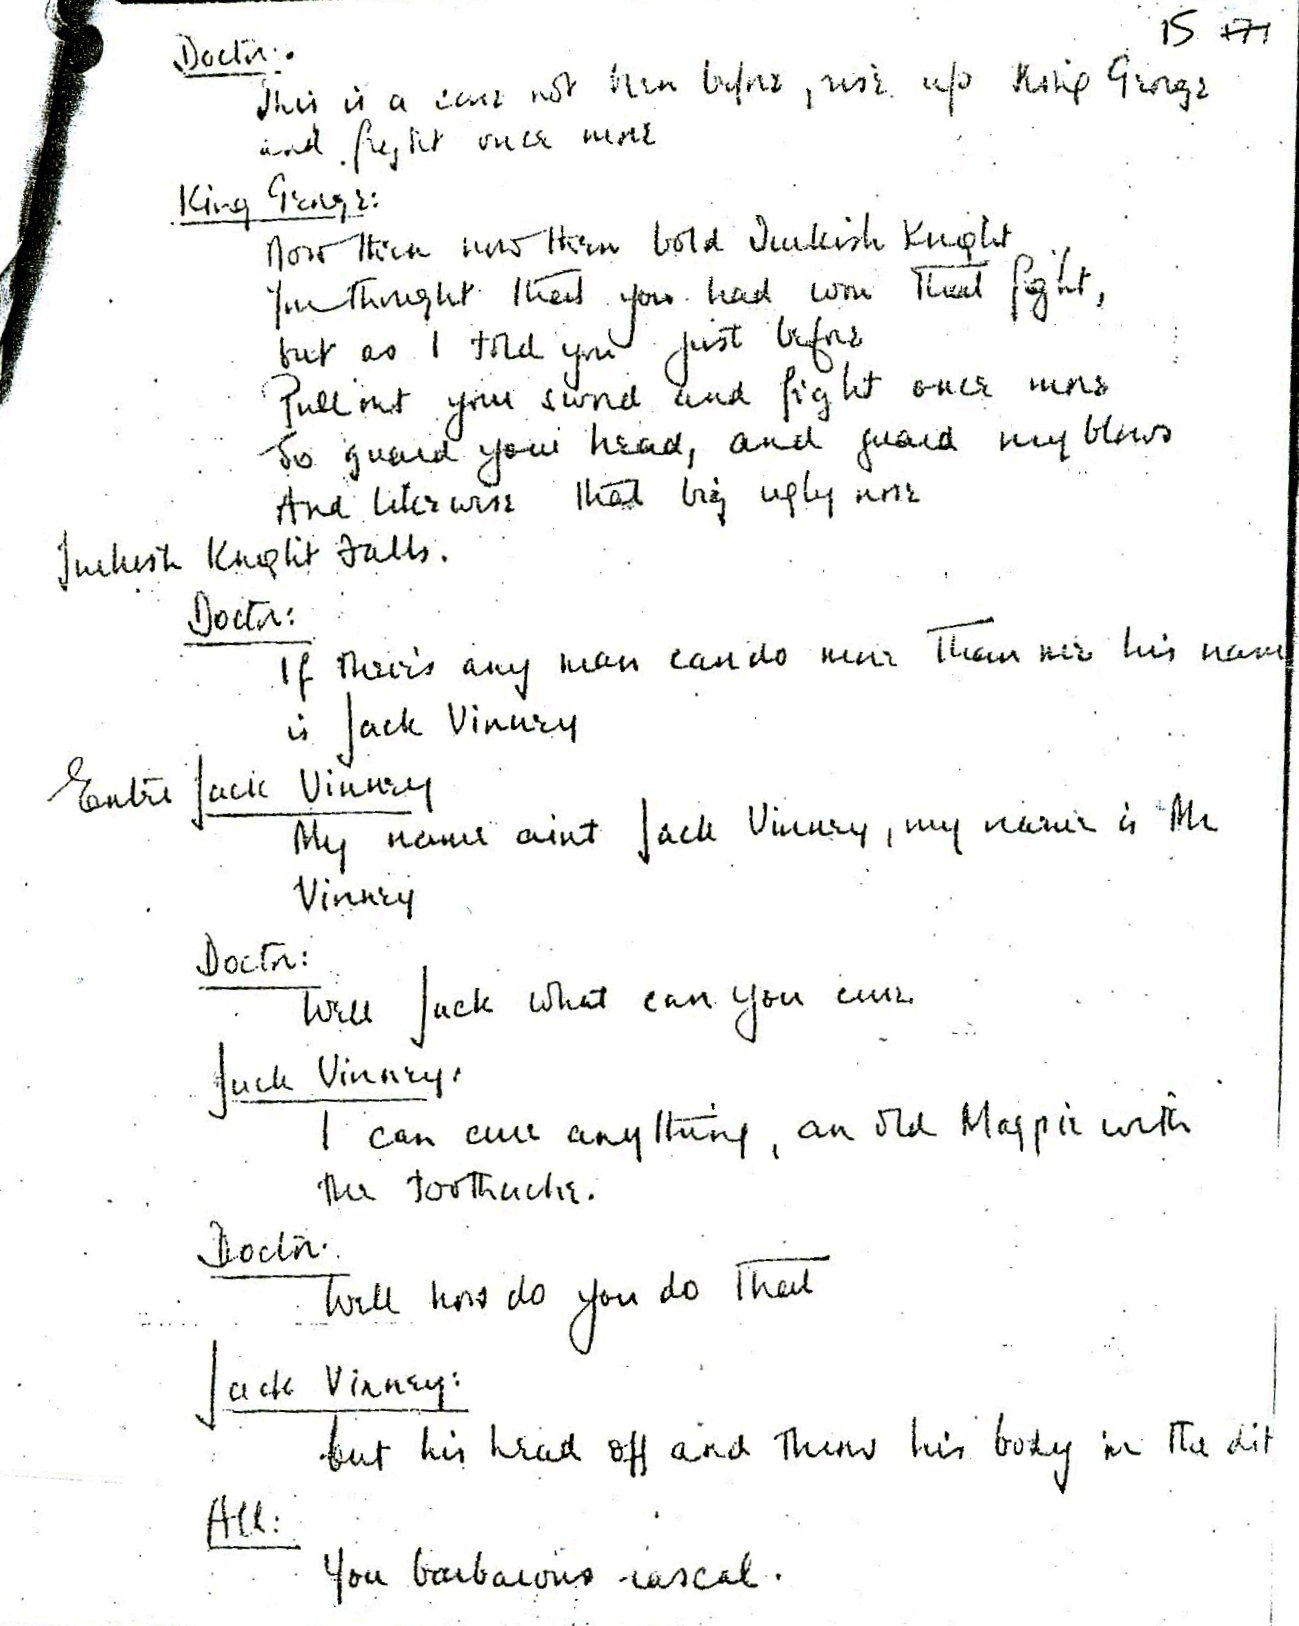 15
Doctor:
This is a cure not been before, rise up King George
and fight once more
King George:
Now then now then bold Turkish Knight
You thought that you had won that fight,
but as I told you just before
Pull out your sword and fight once more
So guard your head, and guard my blows
And likewise that big ugly nose
Turkish Knight Falls.
Doctor:
If there's any man can do more than me his name
is Jack Vinney
Enter Jack Vinney
My name aint Jack Vinney, my name is Mr
Vinney
Doctor:
Well Jack what can you cure
Jack Vinney:
I can cure anything, an old Magpie with
the toothache.
Doctor.
Well how do you do that
Jack Vinney:
but his head off and throw his body in the dit
All:
You barbarous rascal.